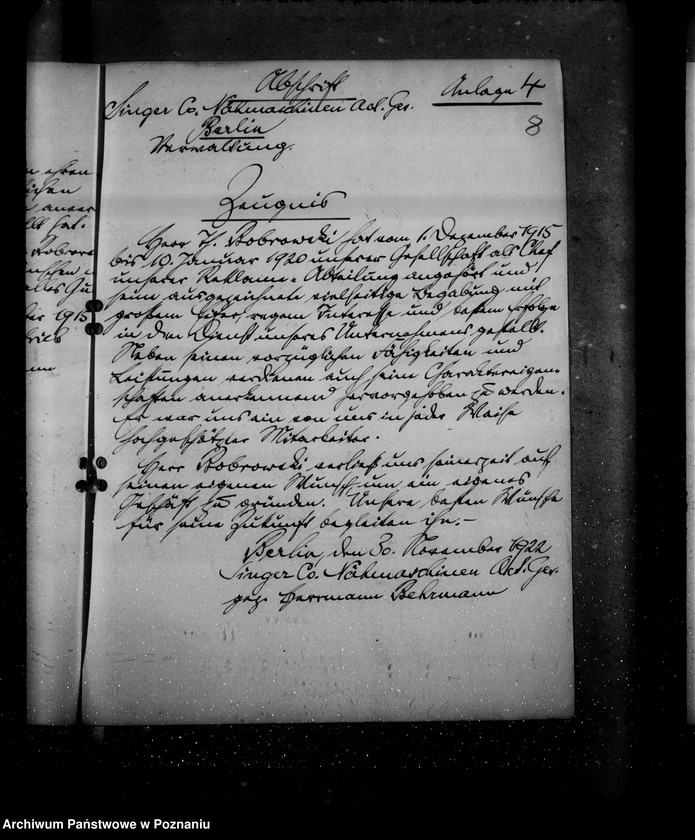 n ehren
lichen
n aner
llt hat.
Bobrow
nschen
alles Gu
ber 1915
Abschrift
Anlage 4
8
Singer Co. Nähmaschinen Act. Ges.
Berlin
Verwaltung.
Zeugnis
Herr Th. Bobrowski hat vom 1. Dezember 1915
bis 10. Januar 1920 unserer Gesellschaft als Chef
unserer Reklame-Abteilung angehört und
seine ausgezeichnete vielseitige Begabung mit
großem Eifer, regem Interesse und bestem Erfolge
in den Dienst unseres Unternehmens gestellt.
Neben seinen vorzüglichen Fähigkeiten und
Leistungen verdienen auch seine Charaktereigen-
schaften anerkennend hervorgehoben zu werden.
Er war uns ein von uns in jeder Weise
hochgeschätzter Mitarbeiter.
Herr Bobrowski verließ uns seinerzeit auf
seinen eigenen Wunsch um ein eigenes
Geschäft zu gründen. Unsere besten Wünsche
für seine Zukunft begleiten ihn.-
Berlin, den 30. November 1922
Singer Co. Nähmaschinen Act. Ges.
gez. Herrmann Behrmann
Archiwum Państwowe w Poznaniu